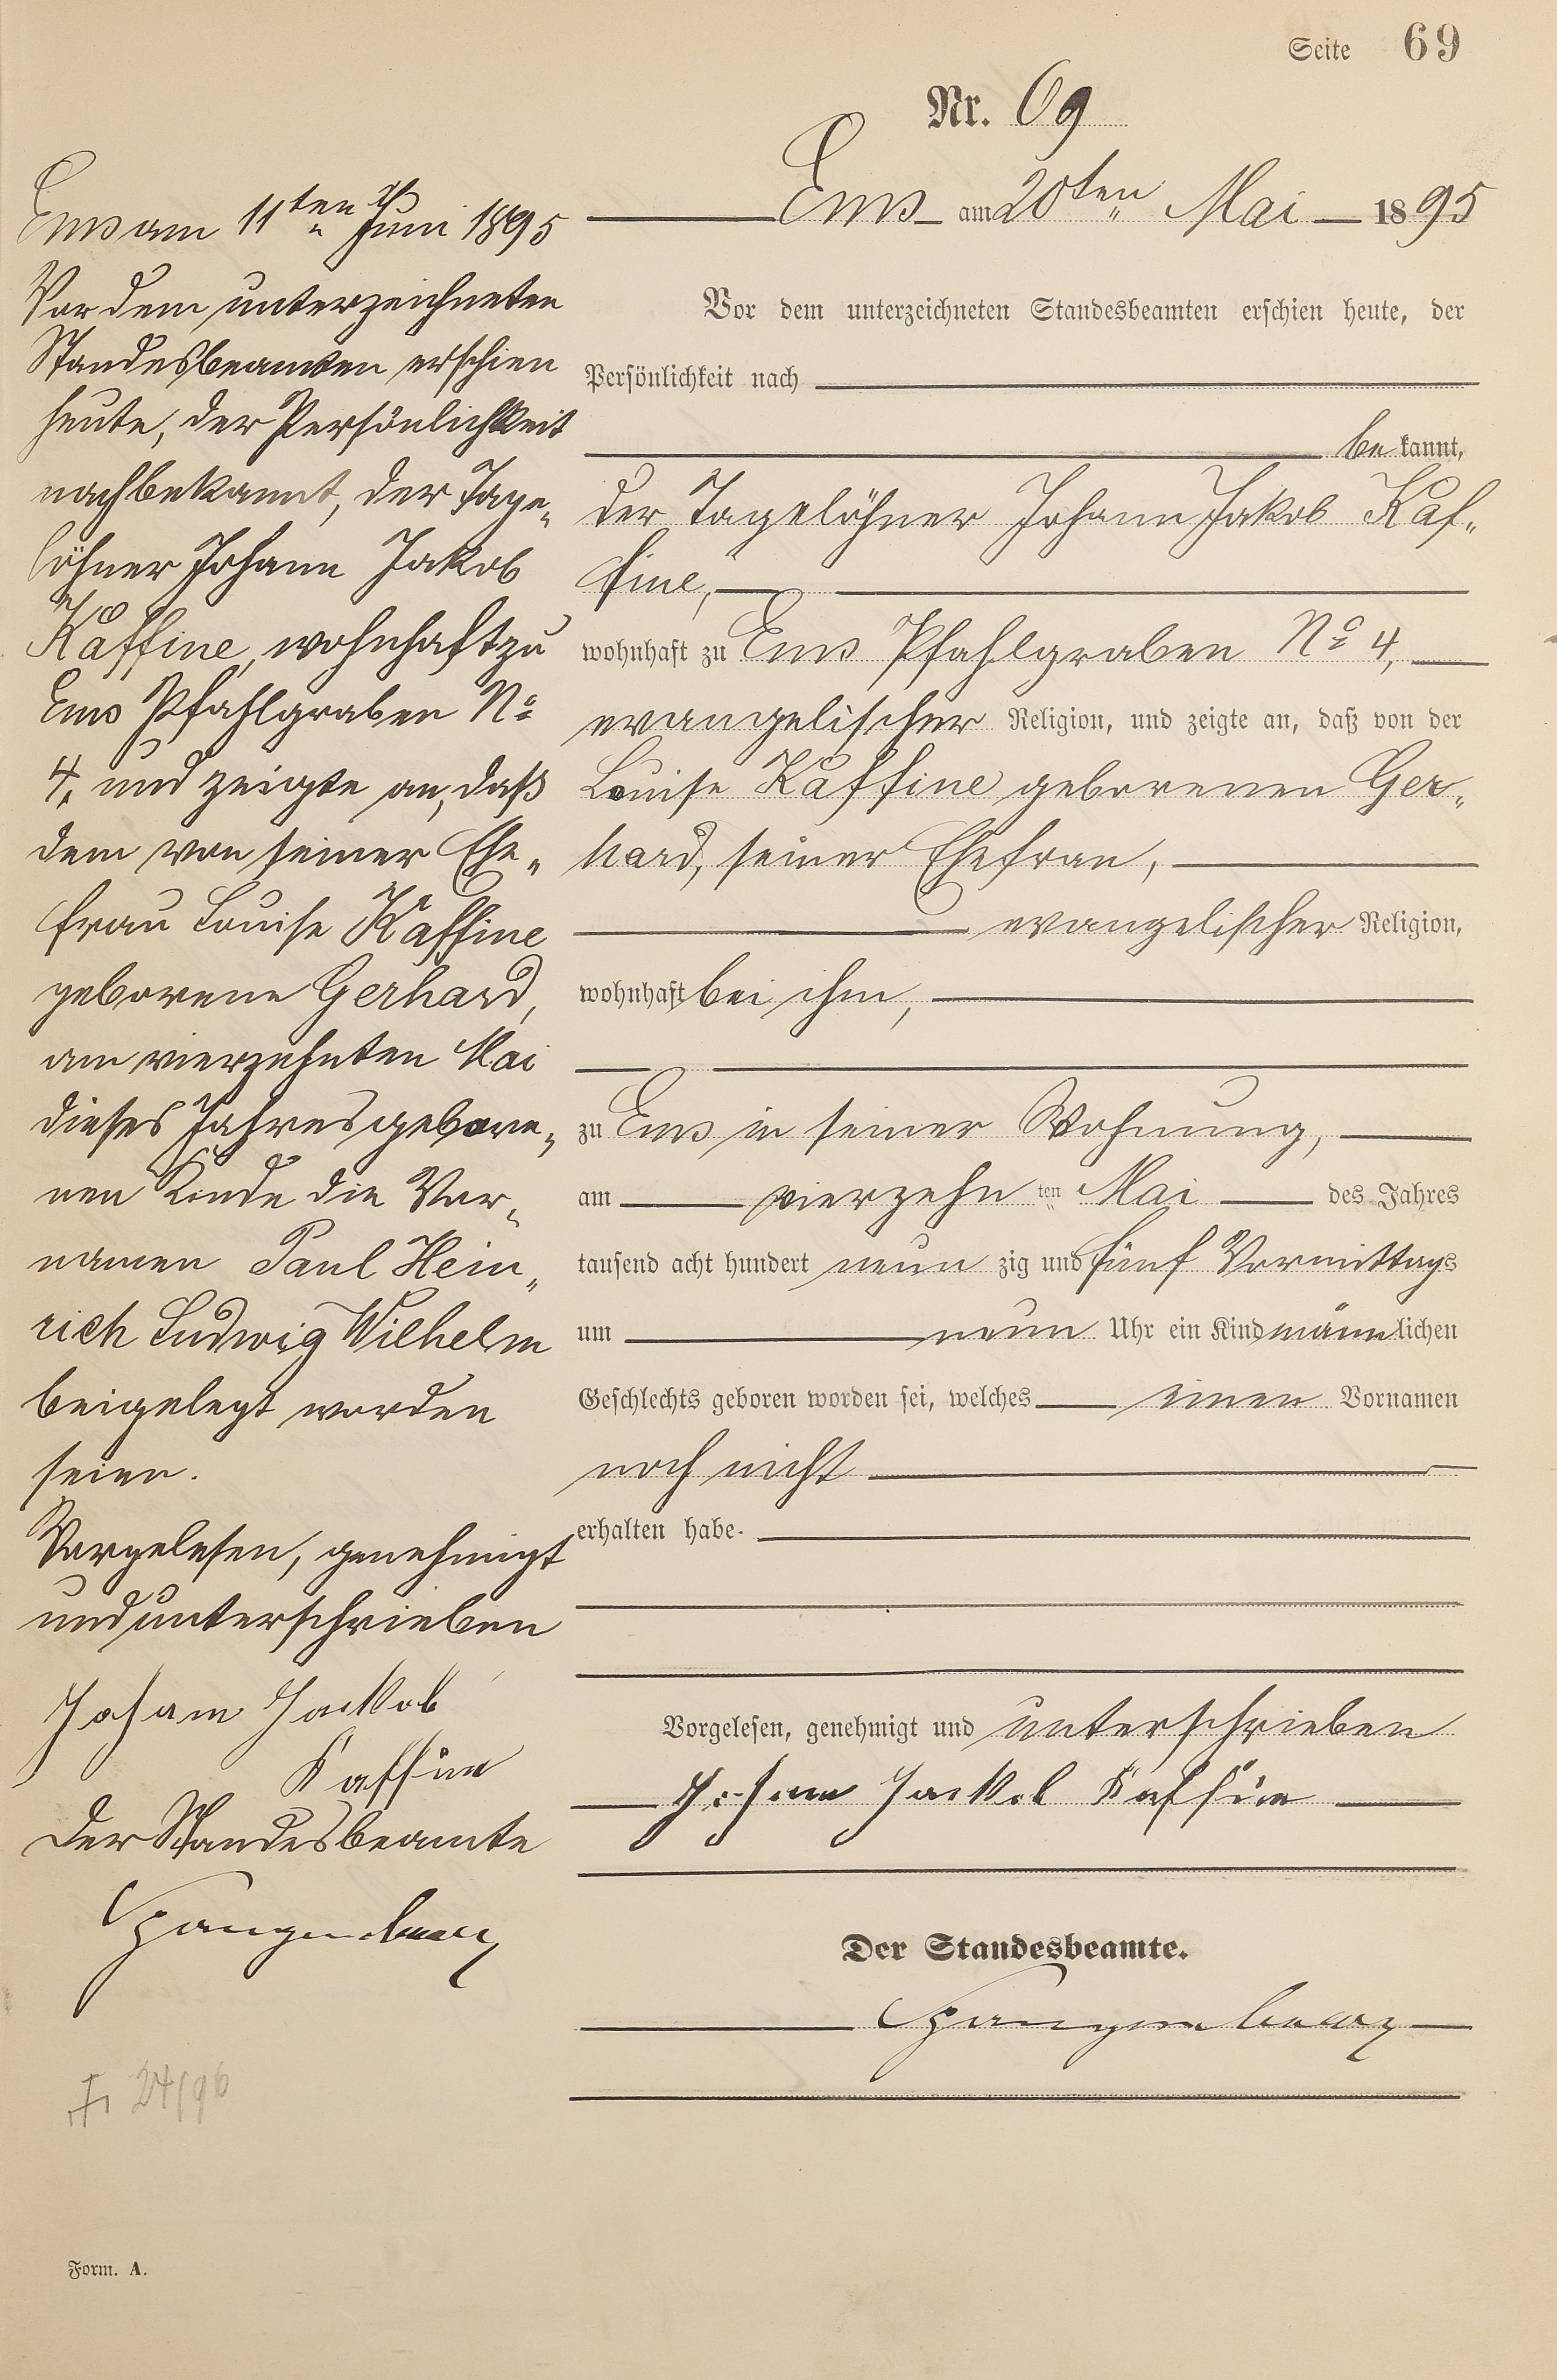 Seite 69
Nr. 69
Ems am 20ten Mai 1895
Vor dem unterzeichneten Standesbeamten erschien heute, der
Persönlichkeit nach
be kannt,
der Tagelöhner Johann Jakob Kaf-
fine,
wohnhaft zu Ems Pfahlgraben No 4,
evangelischer Religion, und zeigte an, daß von der
Louise Kaffine geborenen Ger-
hard, seiner Ehefrau,
evangelischer Religion,
wohnhaft bei ihm,
zu Ems in seiner Wohnung,
am vierzehn ten Mai des Jahres
tausend acht hundert neun zig und fünf Vormittags
um neun Uhr ein Kind männlichen
Geschlechts geboren worden sei, welches einen Vornamen
noch nicht
erhalten habe.
Vorgelesen, genehmigt und unterschrieben
Johann Jackob Kaffine
Der Standesbeamte.
Spangenberg
Ems am 11ten Juni 1895
Vor dem unterzeichneten
Standesbeamten erschien
heute, der Persönlichkeit
nach bekannt, der Tage-
löhner Johann Jakob
Kaffine, wohnhaft zu
Ems Pfahlgraben No
4, und zeigte an, daß
dem von seiner Ehe-
frau Louise Kaffine
geborene Gerhard,
am vierzehnten Mai
dieses Jahres gebore-
nen Kinde die Vor-
namen Paul Hein-
rich Ludwig Wilhelm
beigelegt worden
seien.
Vorgelesen, genehmigt
und unterschrieben
Johann Jackob
Kaffine
Der Standesbeamte
Spangenberg
24/96
Form. A.